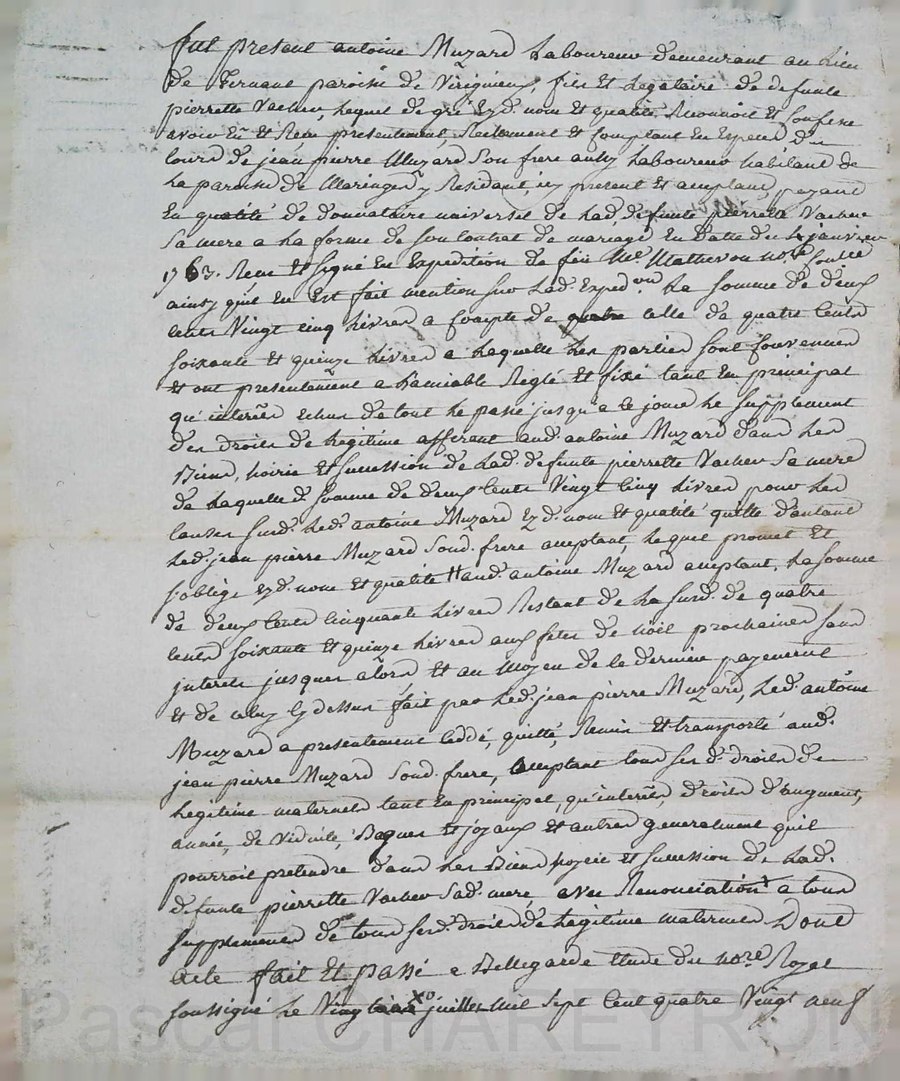 fut present antoine Muzard Laboureur demeurant au Lieu
de Fernant paroisse de Virignieux, fils et Legataire de defunte
pierrette Vacher, lequel de gré ezd. nom et qualité Reconnoit et Confesse
avoir Eu et Receu presentement, Reelement et Comptant En Especes de
Cours de jean pierre Muzard Son frere aussy Laboureur habitant de
La paroisse de Maringes y Residant, icy present et acceptant, payant
En qualité de donnataire universel de Lad. defunte pierrette Vacher
Sa mere a La forme de Son Contrat de mariage En Datte du 4 janvier
1763. Receu et signé En Expedition de feu Me. Matheron nore.
ainsy qu'il En Est fait mention sur Lad. Expedon. La somme de deux
Cents Vingt Cinq Livres a Compte de celle de quatre Cents
soixante et quinze Livres a Laquelle Les parties sont Convenues
et ont presentement a L'amiable Reglé et fixé tant En principal
qu'interets echus de tout Le passé jusqu'a ce jour Le supplement
des droits de Legitime afferent aud. antoine Muzard dans Les
Biens, hoirie et succession de Lad. defunte pierrette Vacher Sa mere
de Laquelle d. somme de deux Cents Vingt Cinq Livres pour Les
Causes susd. Led. antoine Muzard ezd. nom et qualité quitte d'autant
Led. jean pierre Muzard Sond. frere acceptant, Lequel promet Et
s'oblige ezd. nom et qualité aud. antoine Muzard acceptant, La somme
de deux Cents Cinquante Livres Restant de La susd. de quatre
Cents soixante et quinze Livres aux fetes de noël prochaines sans
interets jusques alors et au moyen de ce dernier payement
et de celuy Cy dessus fait par Led. jean pierre Muzard, Led. antoine
Muzard a presentement Ceddé, quitté, Remis et transporté aud.
jean pierre Muzard Sond. frere, acceptant tous ses d. droits de
Legitime maternels tant En principal, qu'interets, droits d'augment,
année, de Viduité, Bagues et joyaux et autres generalement quil
pourroit pretendre dans Les Biens hoirie et succession de Lad.
defunte pierrette Vacher Sad. mere avec Renonciation a tous
supplements de tous sesd. droits de Legitime maternels Dont
acte fait et passé a Bellegarde Etude du nore. Royal
soussigné Le Vingt juillet mil sept Cent quatre Vingt neuf
Pascal CHAREYRON